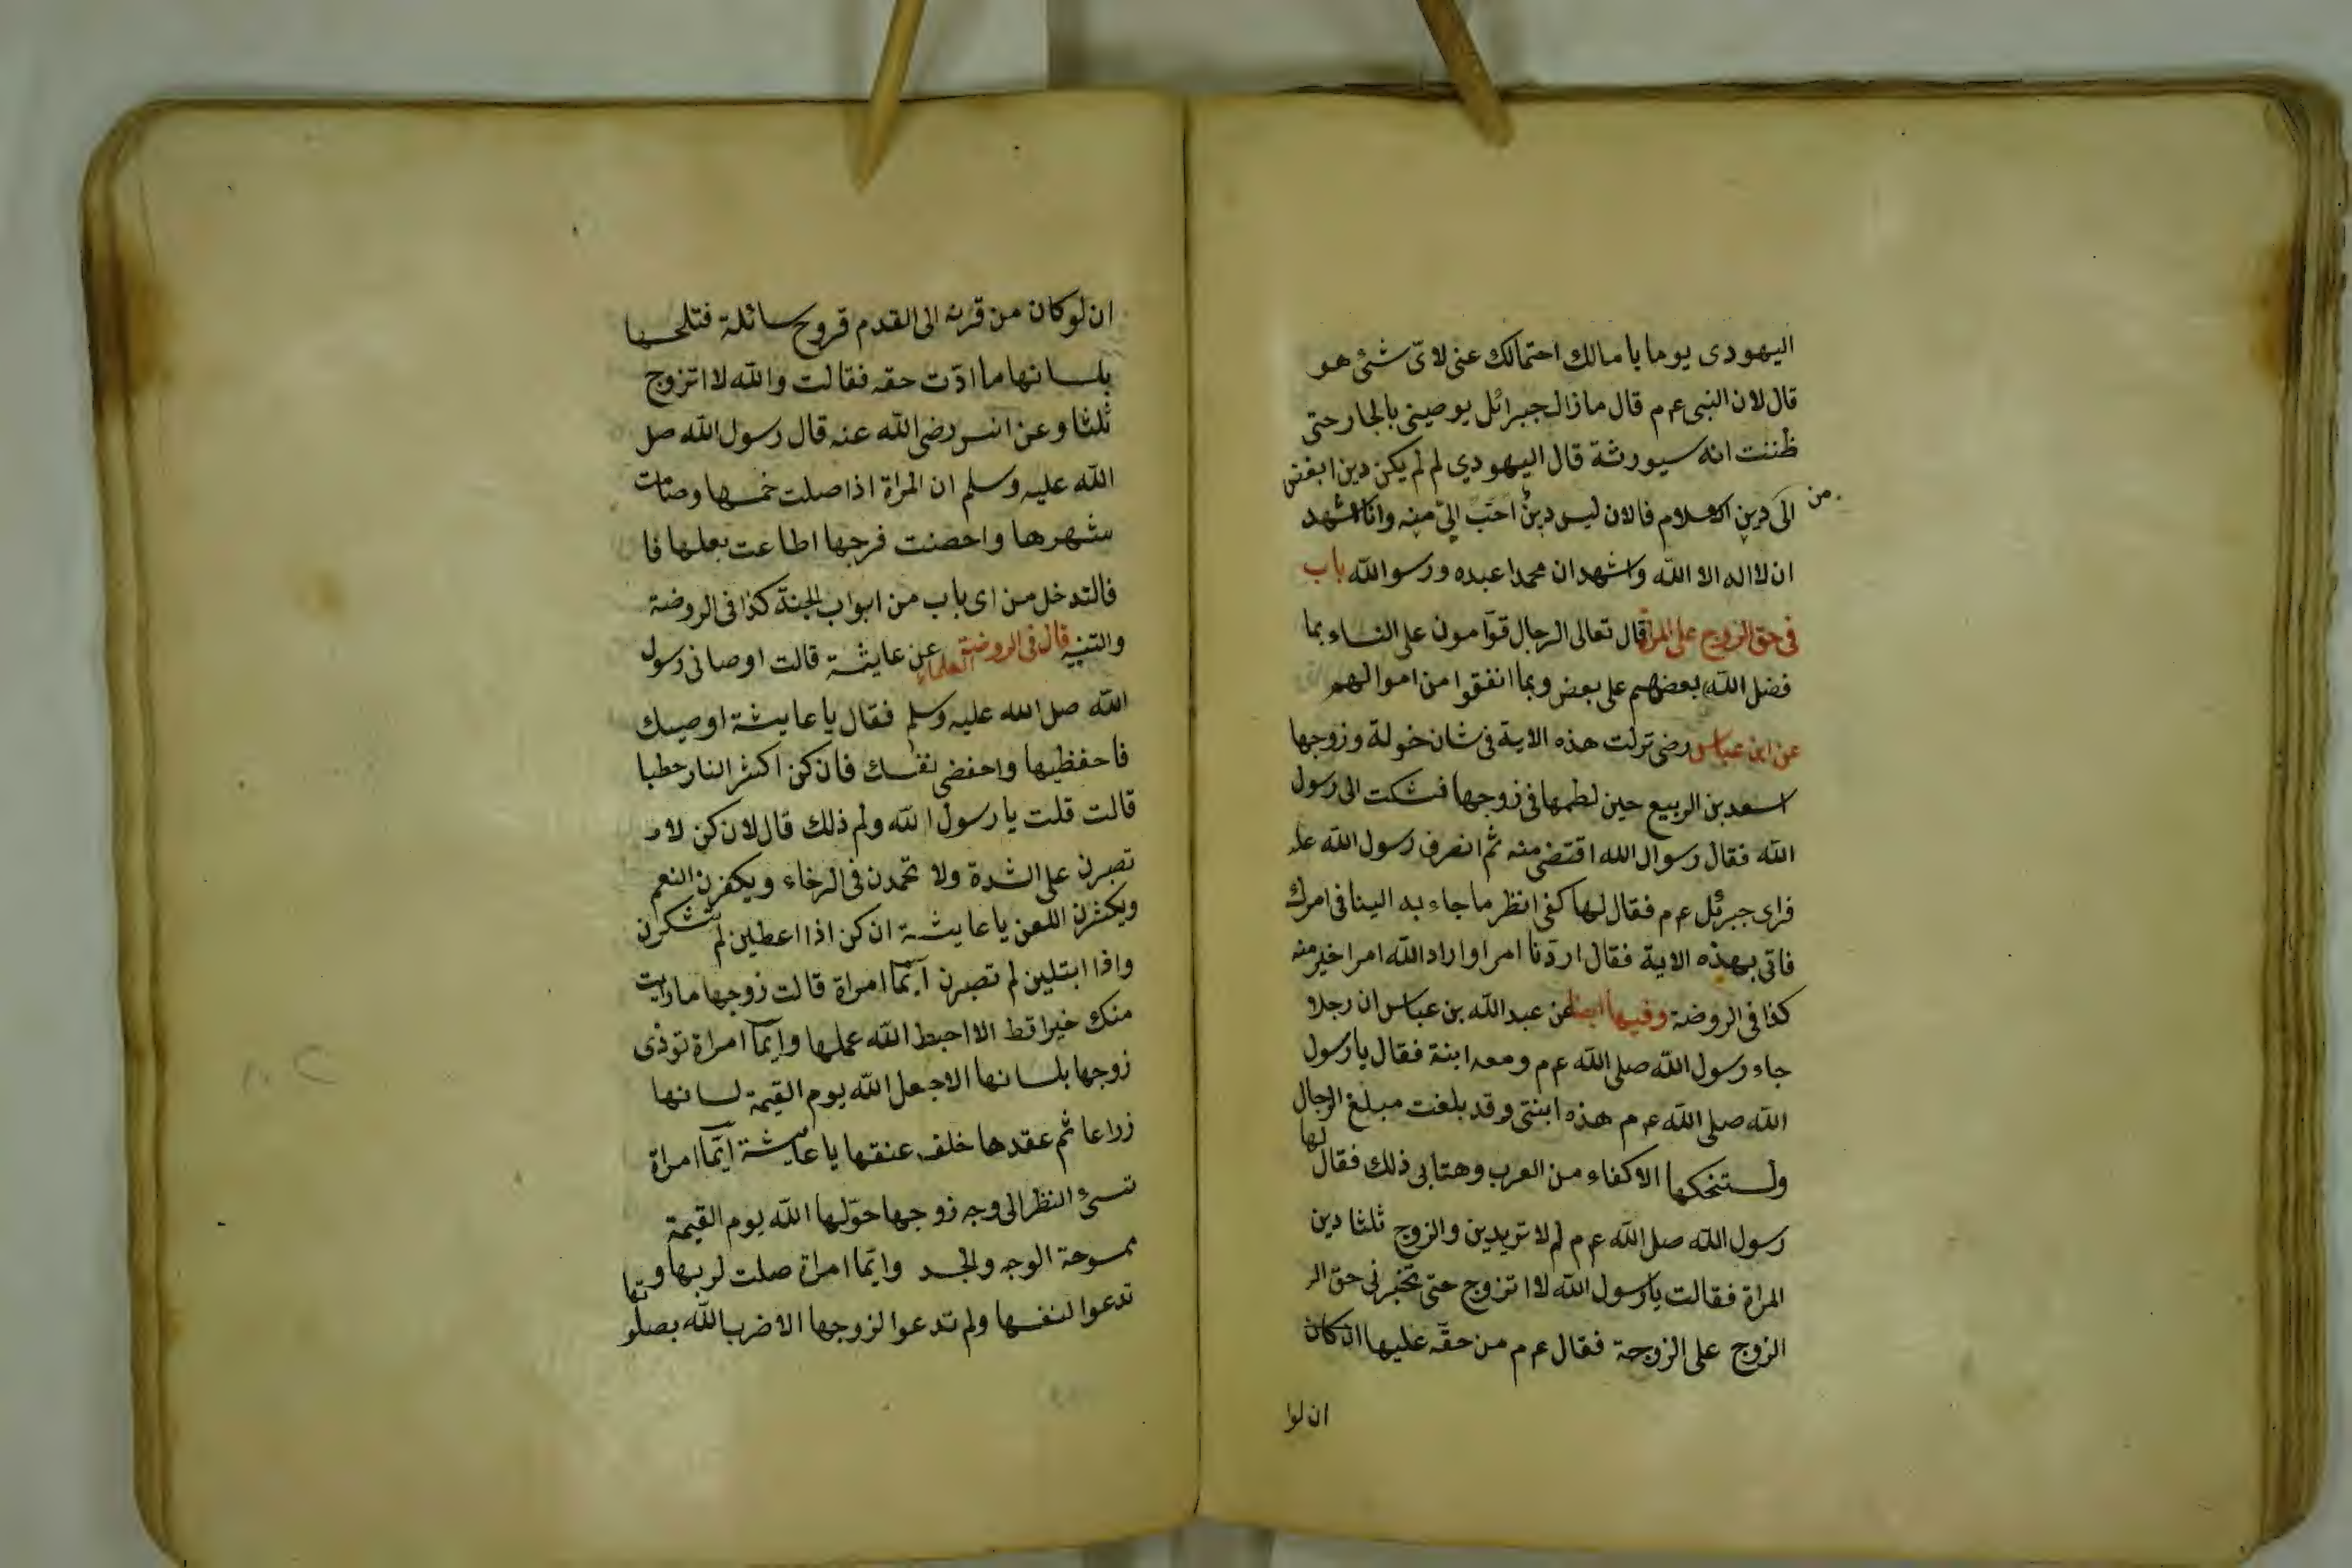 اليهودى يوما يا مالك احتمالك عنى لاىّ شئ هو
قال لان النبى ع م قال مازال جبرائل يوصينى بالجار حتى
ظننت انه سيورثة قال اليهودي لم لم يكن دين ابغض
من
الى دين الاسلام فالان ليس دينٌ احبّ الىّ منه وانا اشهد
ان لا اله الا الله واشهد ان محمدا عبده ورسو الله باب
فى حق الزوج على المراة قال تعالى الرجال قوّامون على النساء بما
فضل الله بعضهم على بعض وبما انفقوا من اموالهم
عن ابن عباس رضى نزلت هذه الاية فى شان خولة وزوجها
اسعد بن الربيع حين لطمها فى زوجها فشكت الى رسول
الله فقال رسوال الله اقتضى منه ثم انصرف رسول الله عل
فراى جبرئل ع م فقال لها كفى انظر ما جاء به الينا فى امرك
فاتى بهذه الاية فقال اردنا امرا واراد الله امرا خير منه
كذا فى الروضة وفيها ايضا عن عبد الله بن عباس ان رجلا
جاء رسول الله صلى الله ع م ومعه ابنة فقال يا رسول
الله صلى الله ع م هذه ابنتى وقد بلغت مبلغ الرجال
ولستنحكها الاكفاء من العرب وهتابى ذلك فقال لها
رسول الله صل الله ع م لم لا تريدين والزوج ثلثا دين
المراة فقالت يا رسول الله لا اتزوج حتى تخبرنى حق الر
الزوج على الزوجة فقال ع م من حقّه عليها ان كان
ان لوا
ان لو كان من قرنه الى القدم قروح سائلة فتلحسها
بلسانها ما ادّت حقه فقالت والله لا اتزوج
ثلثا وعن انس رضى الله عنه قال رسول الله صل
الله عليه وسلم ان المراة اذا صلت خمسها وصامت
شهرها واحصنت فرجها اطاعت بعلها فا
فالتدخل من اى باب من ابواب الجنة كذا فى الروضة
والتنبيه قال فى الروضة العلماء عن عايشة قالت اوصانى رسول
الله صل الله عليه وسلم فقال يا عايشة اوصيك
فاحفظيها واحفضى نفسك فان كن اكثر النار حطبا
قالت قلت يا رسول الله ولم ذلك قال لان كن لا
تصبرن على الشدة ولا تحمدن فى الرخاء ويكفرن النعم
ويكثرن اللعن يا عايشة ان كن اذا اعطين لم تشكرن
واذا ابتلين لم تصبرن ايّما امراة قالت زوجها ما رايت
منك خيرا قط الا احبط الله عملها وايّما امراة تؤذى
زوجها بلسانها الا جعل الله يوم القيمة لسانها
زراعا ثم عقدها خلف عنقها يا عايشة ايّما امراة
تسئ النظر الى وجه زوجها حوّلها الله يوم القيمة
ممسوحة الوجه والجسد وايّما امراة صلت لربها وتها
تدعوا لنفسها ولم تدعوا لزوجها الا ضرب الله بصلو